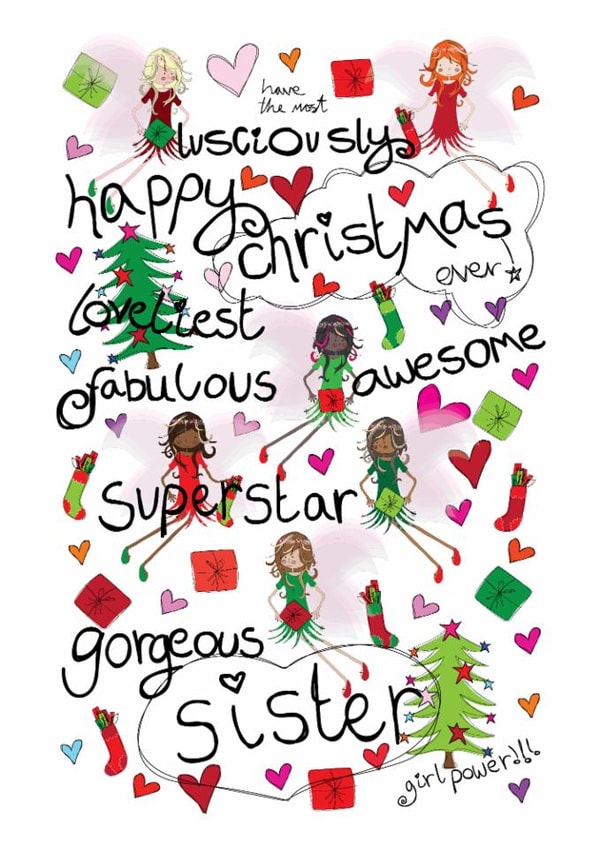 have
the most
lusciously
happy
christmas
ever
loveliest
fabulous
awesome
superstar
gorgeous
sister
girl power!!!